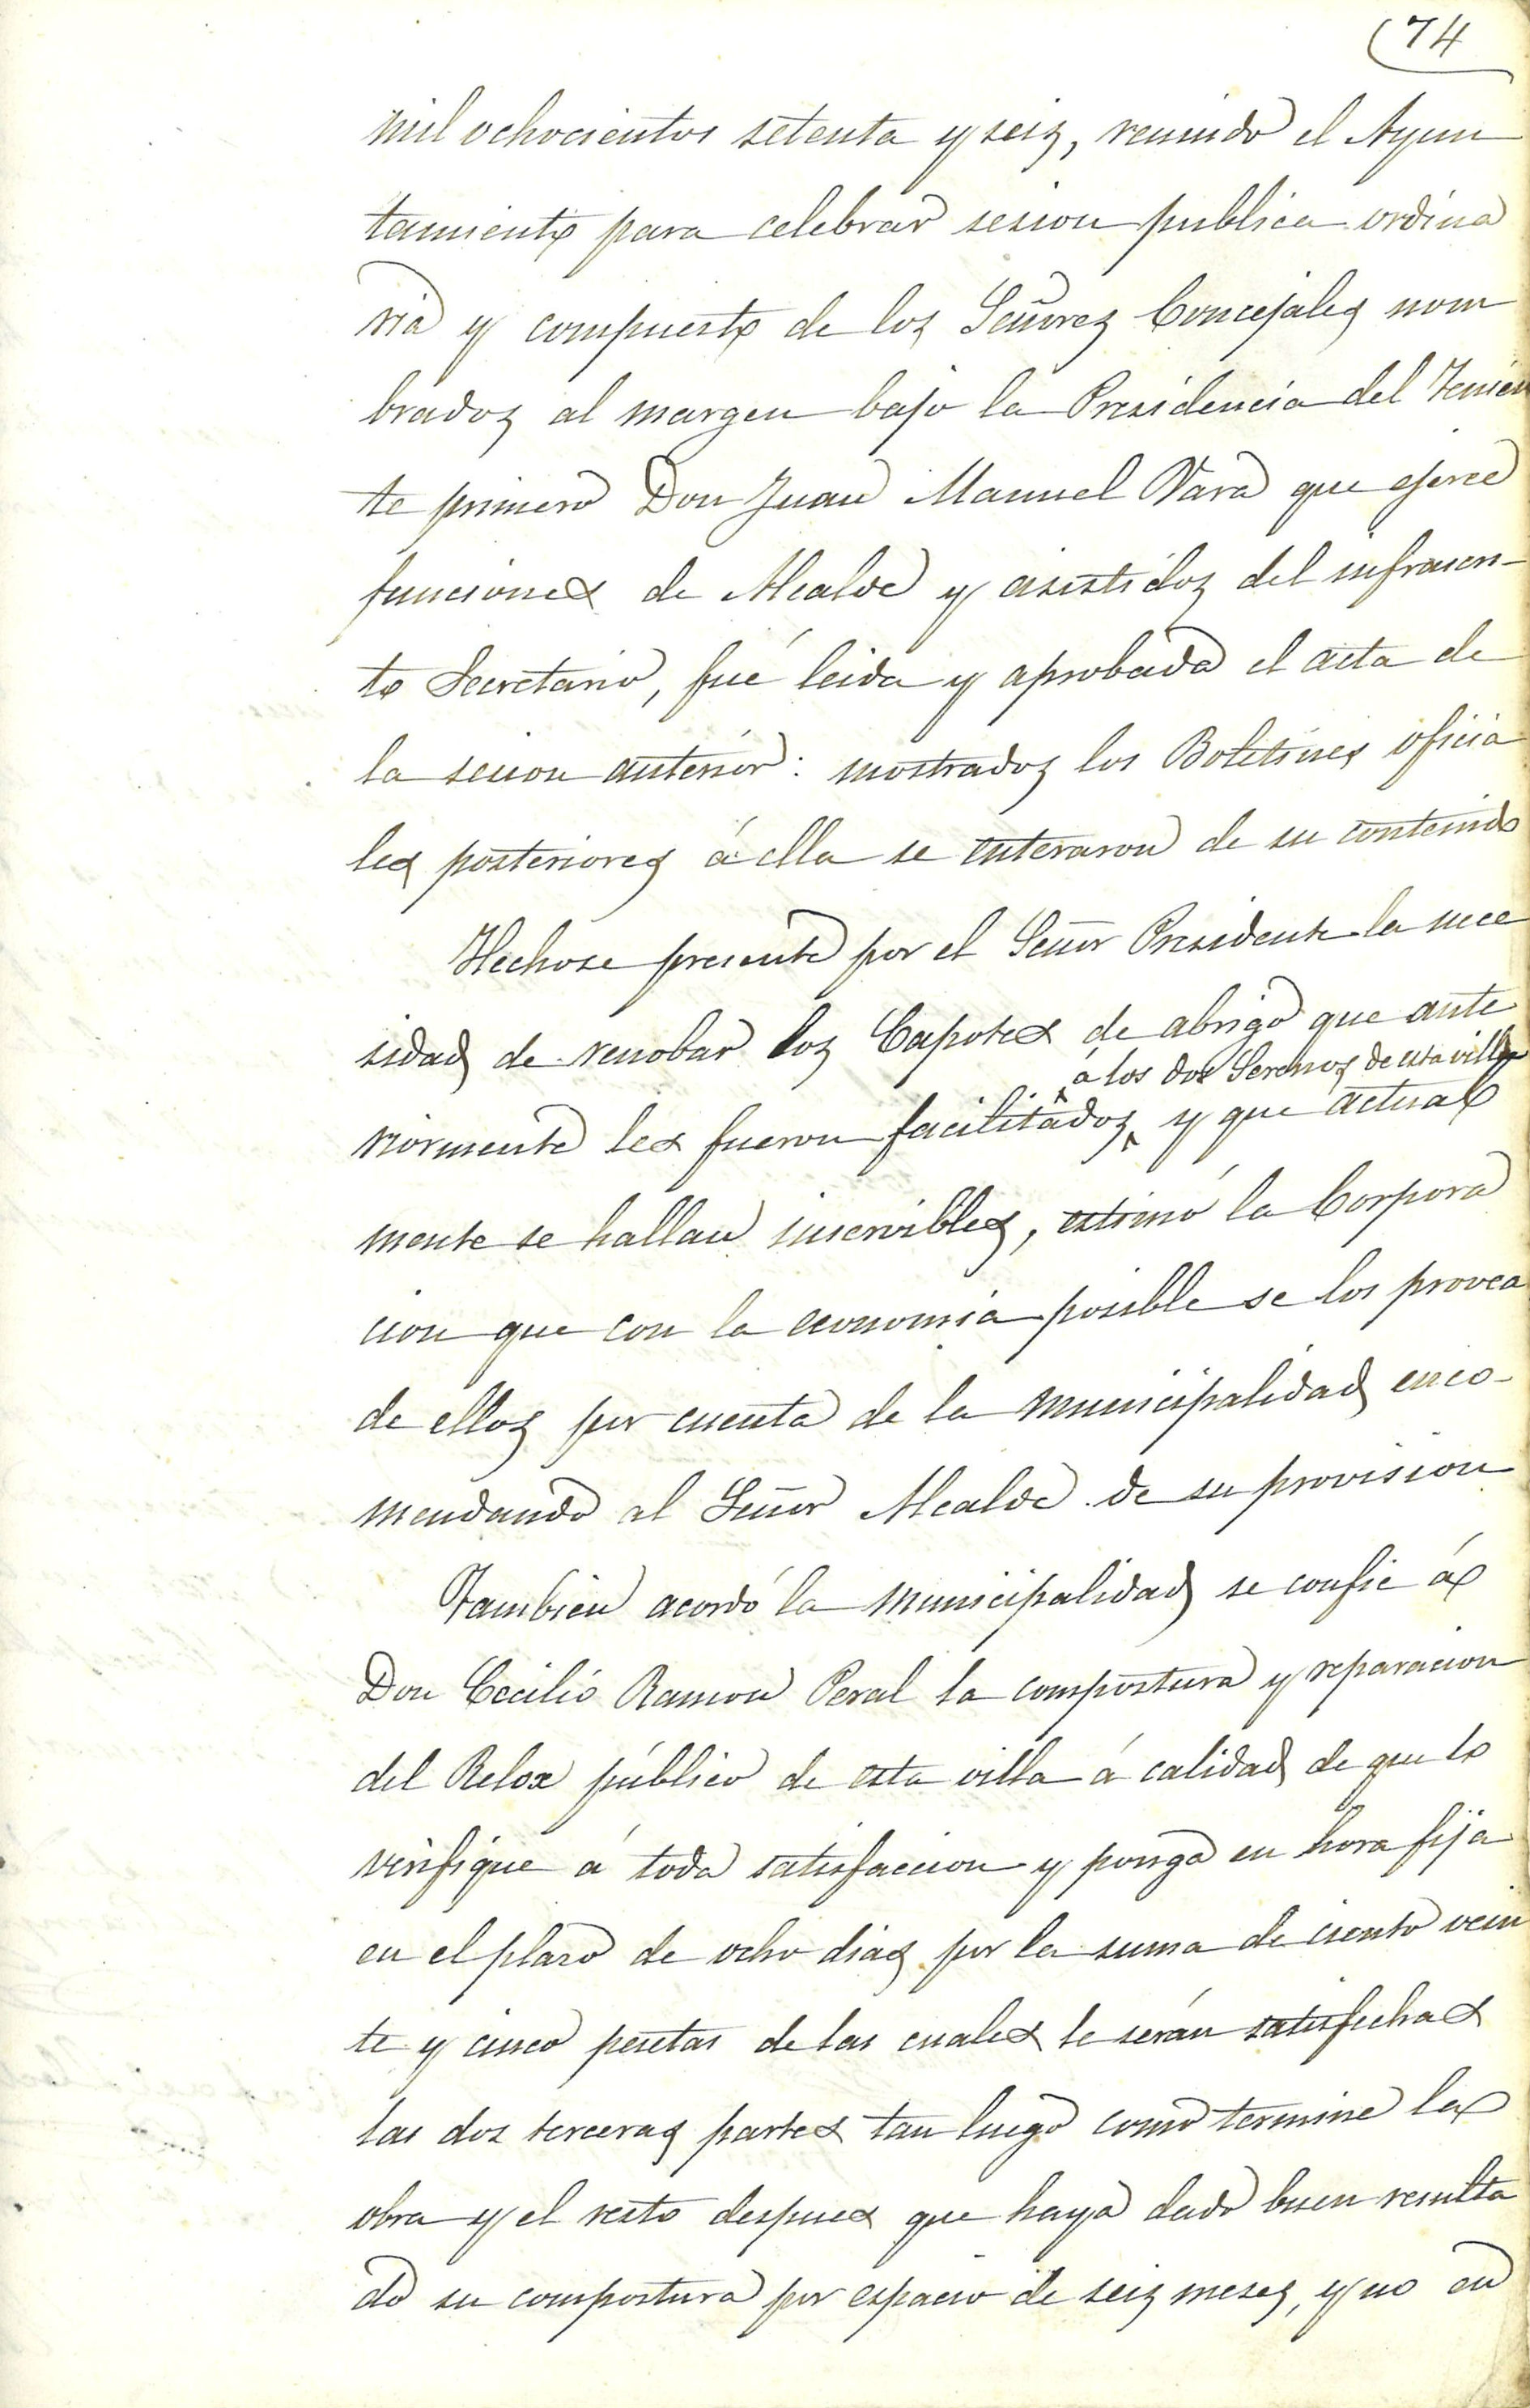 74
mil ochocientos setenta y seis, reunido el Ayun
tamiento para celebrar sesion publica ordina
ria y compuesto de los Señores Concejales nom
brados al margen bajo la Presidencia del Tenien
te primero Don Juan Manuel Vara que ejerce
funciones de Alcalde y asistidos del infrascri-
to Secretario, fué leida y aprobada el acta de
la sesion anterior: mostrados los Boletines oficia
les posteriores á ella se enteraron de su contenido
Hechose presente por el Señor Presidente la nece
sidad de renobar los Capotes de abrigo que ante
á los dos Serenos de esta villa
riormente les fueron facilitados y que actual
mente se hallan inservibles, estimó la Corpora
cion que con la economia posible se los provea
de ellos por cuenta de la municipalidad enco-
mendando al Señor Alcalde de su provision
Tambien acordó la municipalidad se confie á
Don Cecilio Ramon Peral la compostura y reparacion
del Relox público de esta villa á calidad de que lo
verifique á toda satisfaccion y ponga en hora fija
en el plazo de ocho dias por la suma de ciento vein
te y cinco pesetas de las cuales le serán satisfechas
las dos terceras partes tan luego como termine la
obra y el resto despues que haya dado buen resulta
do su compostura por espacio de seis meses, y no en